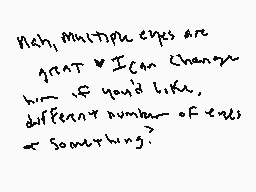 Nah, multiple eyes are
great ♥ I can change
him if you'd like,
different number of eyes
or something?